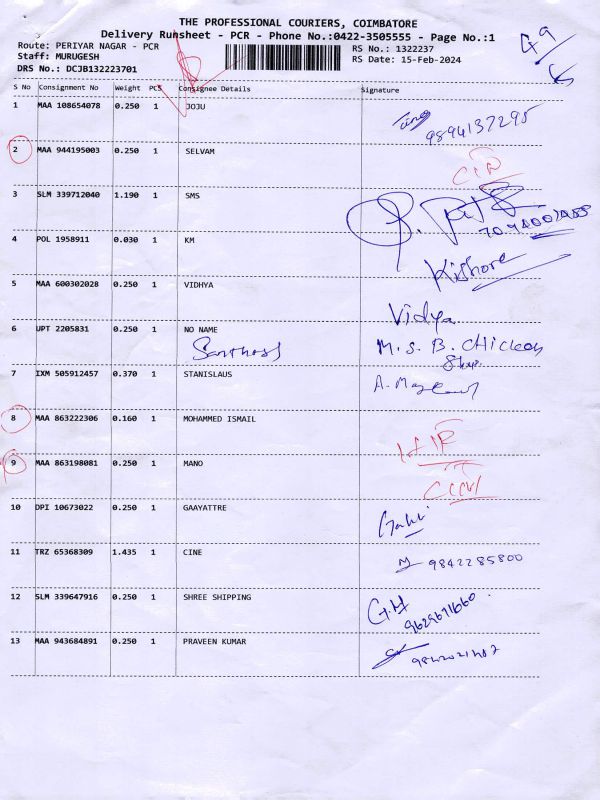 THE PROFESSIONAL COURIERS, COIMBATORE
Delivery Runsheet - PCR - Phone No.:0422-3505555 - Page No.:1
Route: PERIYAR NAGAR - PCR RS No.: 1322237
Staff: MURUGESH RS Date: 15-Feb-2024
DRS No.: DCJB132223701
S No Consignment No Weight PCS Consignee Details Signature
1 MAA 108654078 0.250 1 JOJU
9894137295
2 MAA 944195003 0.250 1 SELVAM
3 SLM 339712040 1.190 1 SMS
4 POL 1958911 0.030 1 KM
Kishore
5 MAA 600302028 0.250 1 VIDHYA
Vidya
6 UPT 2205831 0.250 1 NO NAME
Santhosh M.S.B. Chicken
Shop.
7 IXM 505912457 0.370 1 STANISLAUS
8 MAA 863222306 0.160 1 MOHAMMED ISMAIL
9 MAA 863198081 0.250 1 MANO
10 DPI 10673022 0.250 1 GAAYATTRE
11 TRZ 65368309 1.435 1 CINE
9842285800
12 SLM 339647916 0.250 1 SHREE SHIPPING
G.M
9629671660
13 MAA 943684891 0.250 1 PRAVEEN KUMAR